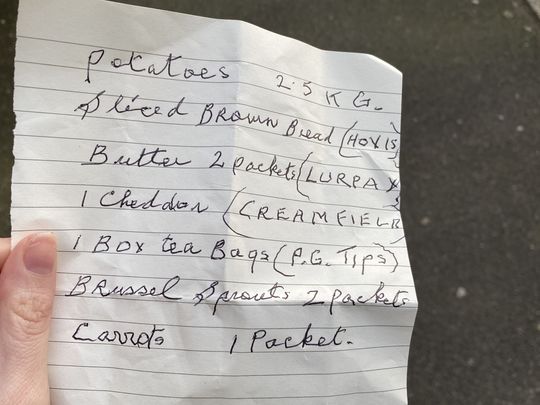 Potatoes 2.5 K G.
Sliced BROWN Bread (HOVIS)
Butter 2 packets (LURPAX)
1 Cheddar (CREAMFIELD)
1 Box tea Bags (P.G. TIPS)
BRussel Sprouts 2 packets
Carrots 1 Packet.